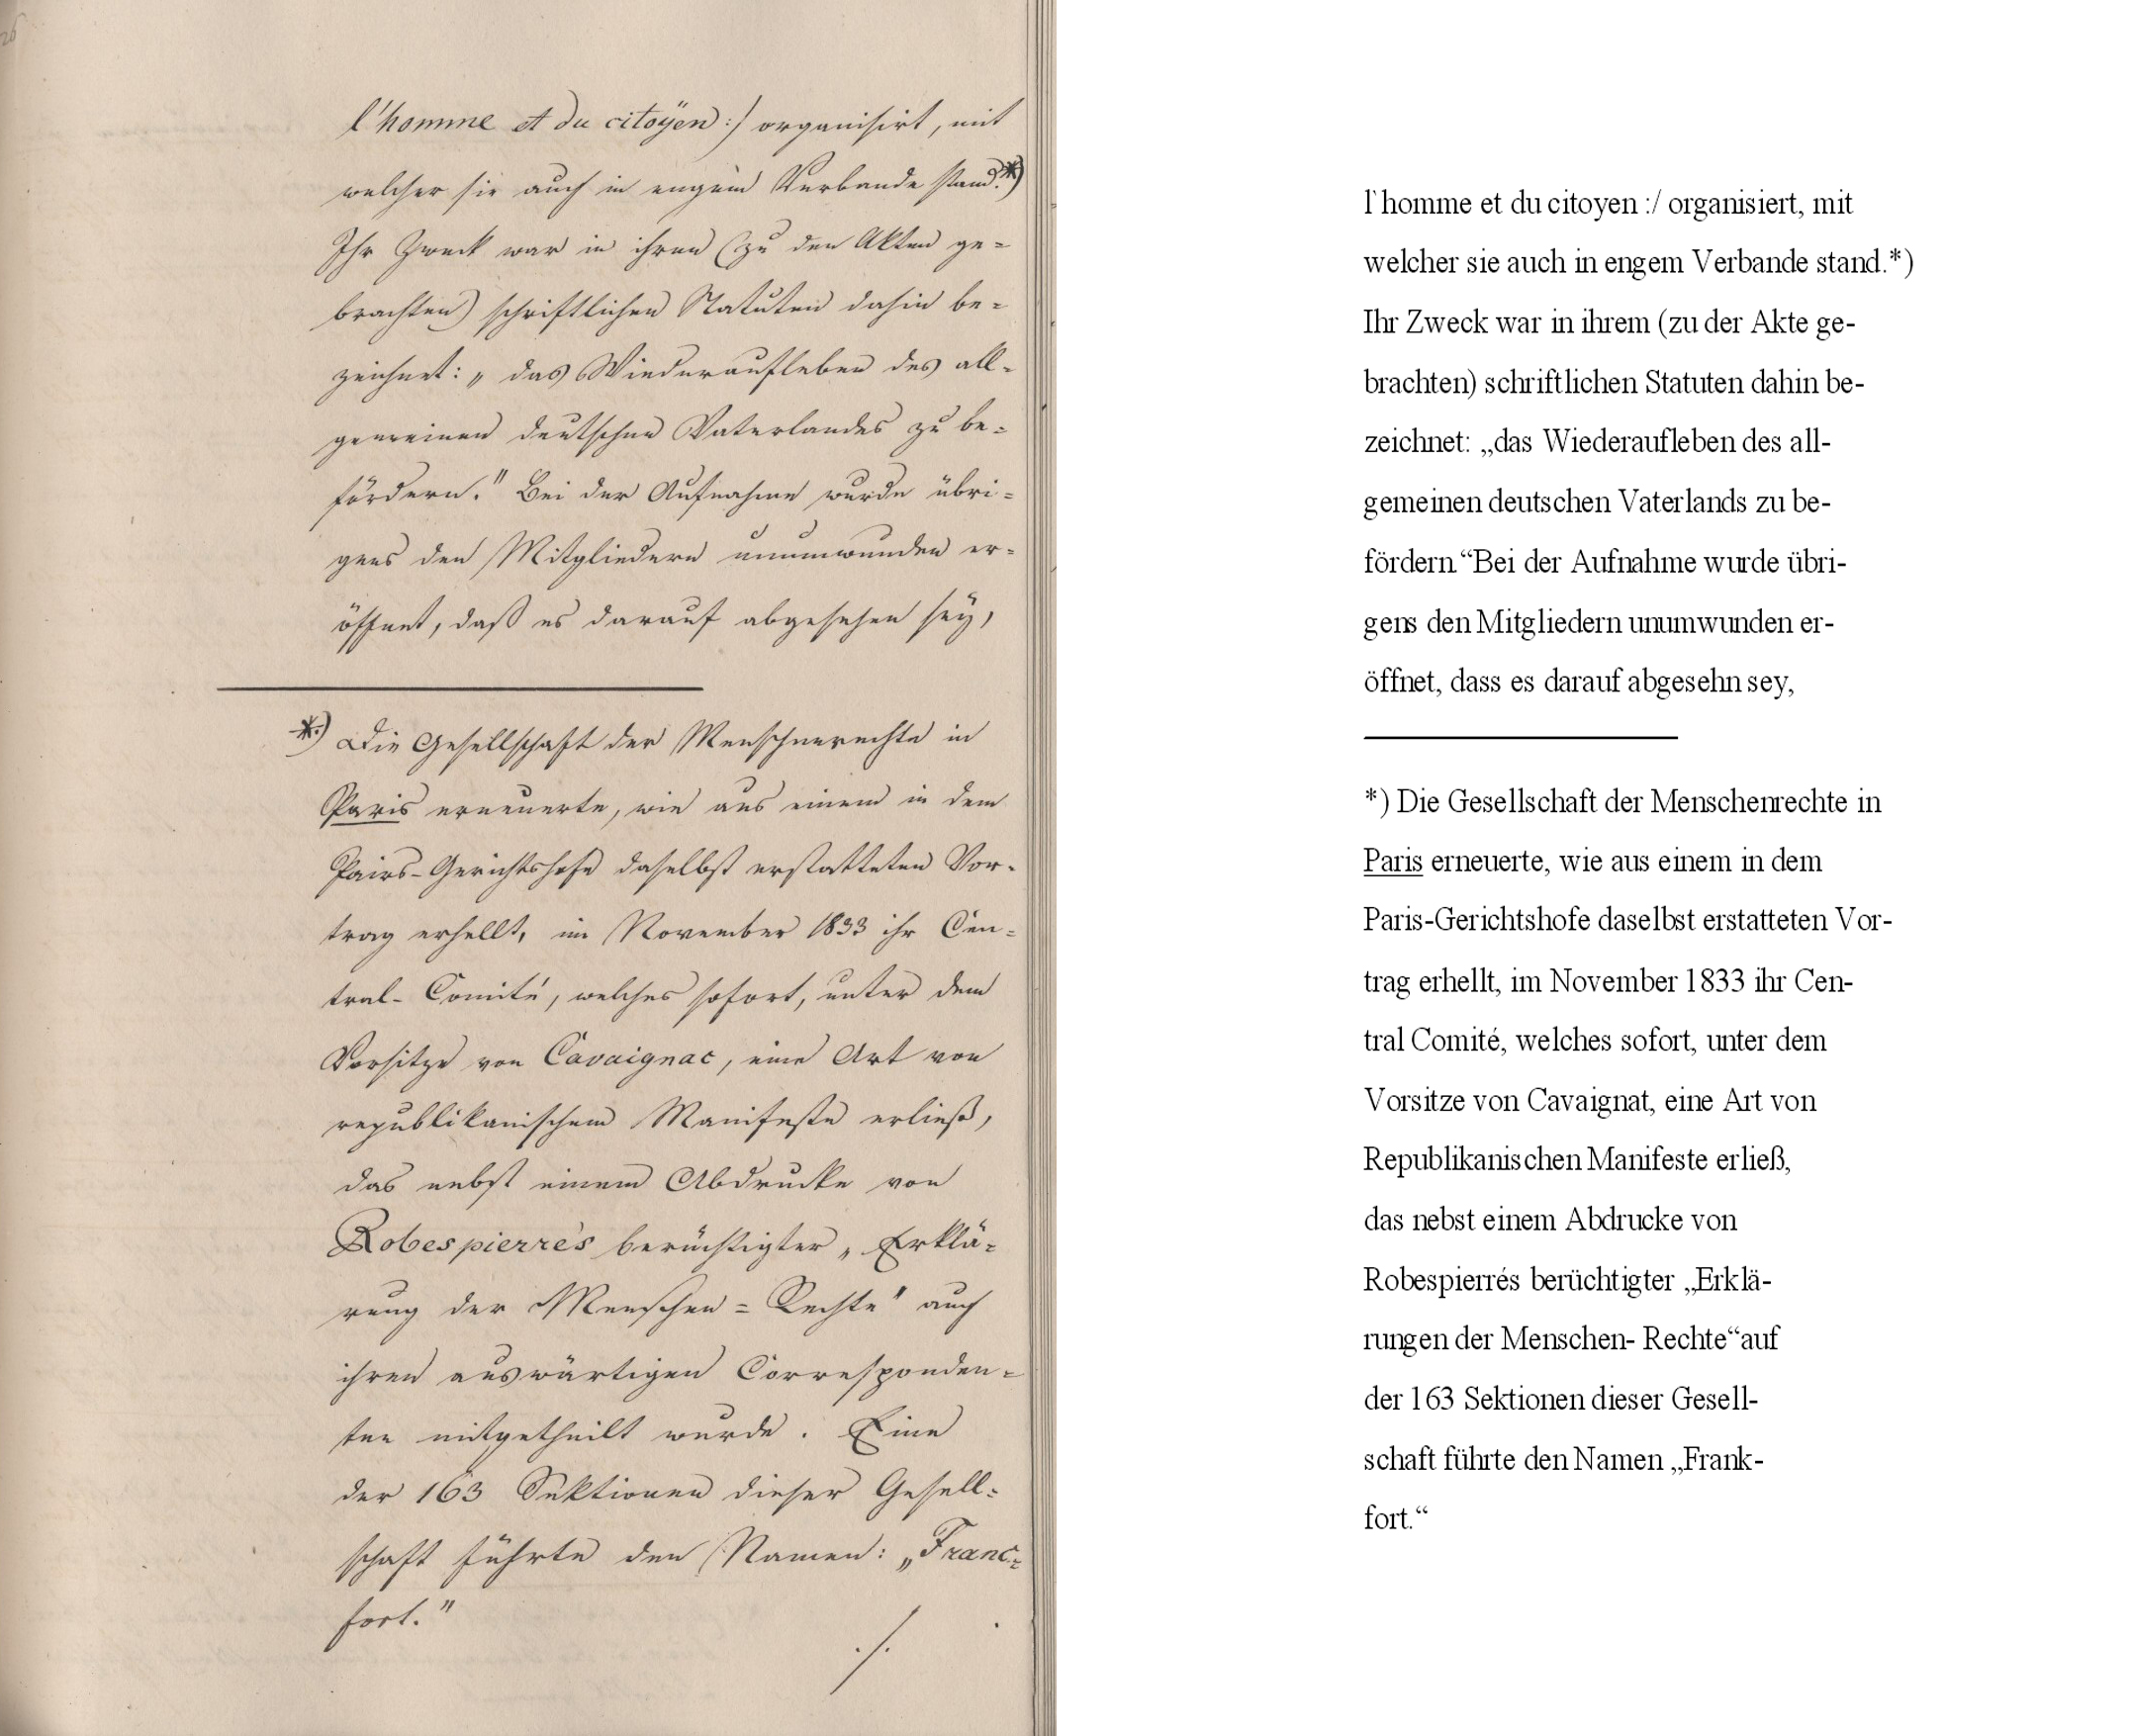 26
l'homme et du citoÿen :/ organisirt, mit
welcher sie auch in engem Verbande stand.*)
Ihr Zweck war in ihren (zu den Akten ge=
brachten) schriftlichen Statuten dahin be=
zeichnet: „das Wiederaufleben des all=
gemeinen deutschen Vaterlandes zu be=
fördern." Bei der Aufnahme wurde übri=
gens den Mitgliedern unumwunden er=
öffnet, daß es darauf abgesehen seÿ,
*) Die Gesellschaft der Menschenrechte in
Paris erneuerte, wie aus einem in dem
Pairs-Gerichtshofe daselbst erstatteten Vor=
trag erhellt, im November 1833 ihr Cen=
tral-Comité, welches sofort, unter dem
Vorsitze von Cavaignac, eine Art von
republikanischem Manifeste erließ,
das nebst einem Abdrucke von
Robespierre's berüchtigter „Erklä=
rung der Menschen=Rechte" auch
ihren auswärtigen Corresponden=
ten mitgetheilt wurde. Eine
der 163 Sektionen dieser Gesell=
schaft führte den Namen: „Franc=
fort."
./.
l'homme et du citoyen :/ organisiert, mit
welcher sie auch in engem Verbande stand.*)
Ihr Zweck war in ihrem (zu der Akte ge-
brachten) schriftlichen Statuten dahin be-
zeichnet: „das Wiederaufleben des all-
gemeinen deutschen Vaterlands zu be-
fördern.“Bei der Aufnahme wurde übri-
gens den Mitgliedern unumwunden er-
öffnet, dass es darauf abgesehn sey,
*) Die Gesellschaft der Menschenrechte in
Paris erneuerte, wie aus einem in dem
Paris-Gerichtshofe daselbst erstatteten Vor-
trag erhellt, im November 1833 ihr Cen-
tral Comité, welches sofort, unter dem
Vorsitze von Cavaignat, eine Art von
Republikanischen Manifeste erließ,
das nebst einem Abdrucke von
Robespierrés berüchtigter „Erklä-
rungen der Menschen- Rechte“auf
der 163 Sektionen dieser Gesell-
schaft führte den Namen „Frank-
fort.“